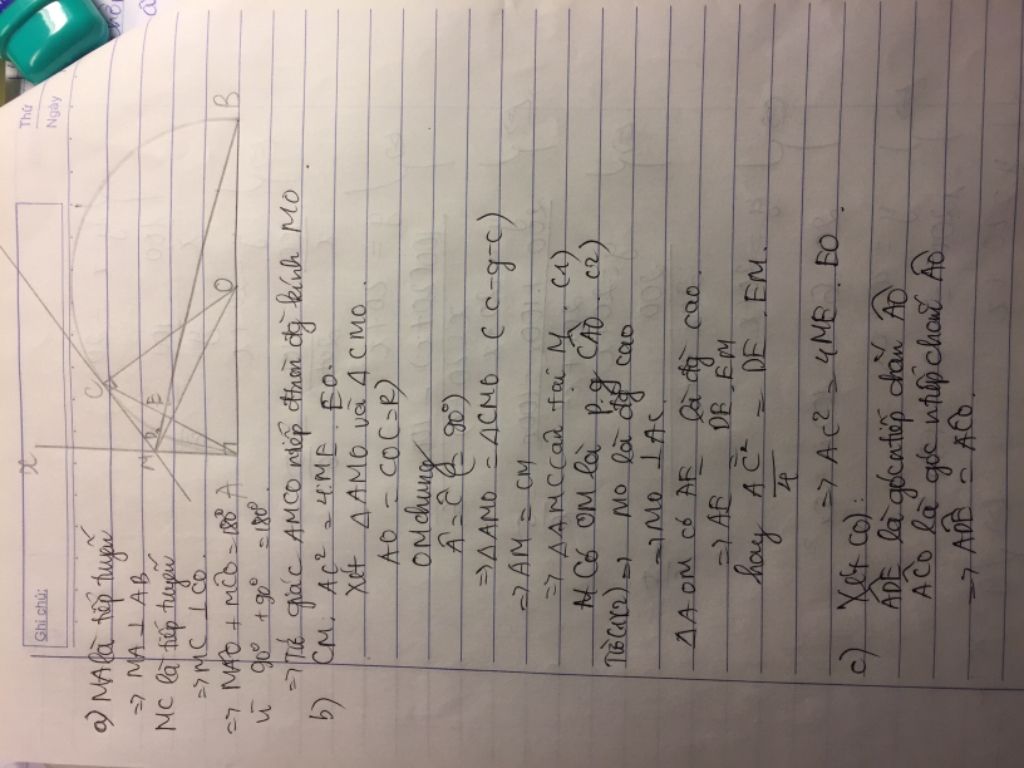 Thứ
Ngày
Ghi chú:
x
C
M
D
E
A
O
B
a) MA là tiếp tuyến
=> MA ⊥ AB
MC là tiếp tuyến
=> MC ⊥ CO.
=> MAO + MCO = 180°
vì 90° + 90° = 180°
=> Tứ giác AMCO nội tiếp đường kính MO
b) CM. AC² = 4ME. EO.
Xét ΔAMO và ΔCMO.
AO = CO (=R)
OM chung
Â = Ĉ (= 90°)
=> ΔAMO = ΔCMO (C-g-C)
=> AM = CM
=> ΔAMC cân tại M. (1)
Có OM là p.g CÂO. (2)
Từ (1)(2) => MO là đg cao
=> MO ⊥ AC.
ΔAOM có AE là đg cao.
=> AE = DE. EM
hay AC²/4 = DE. EM.
=> AC² = 4ME. EO
c) Xét (O):
ADE là góc nội tiếp chắn AO
ACO là góc n.tiếp chắn AO
=> ADE = ACO.